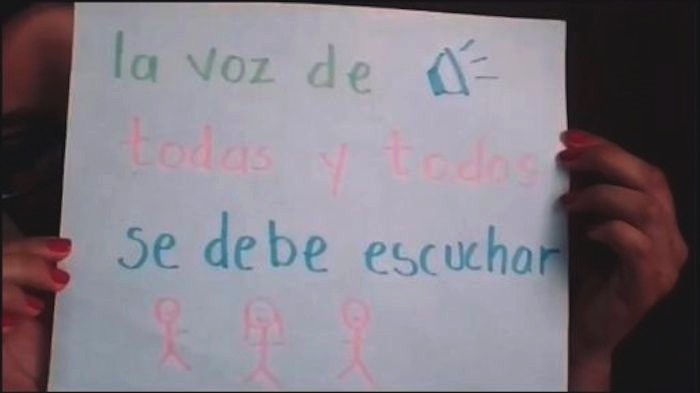 la voz de
todas y todos
se debe escuchar